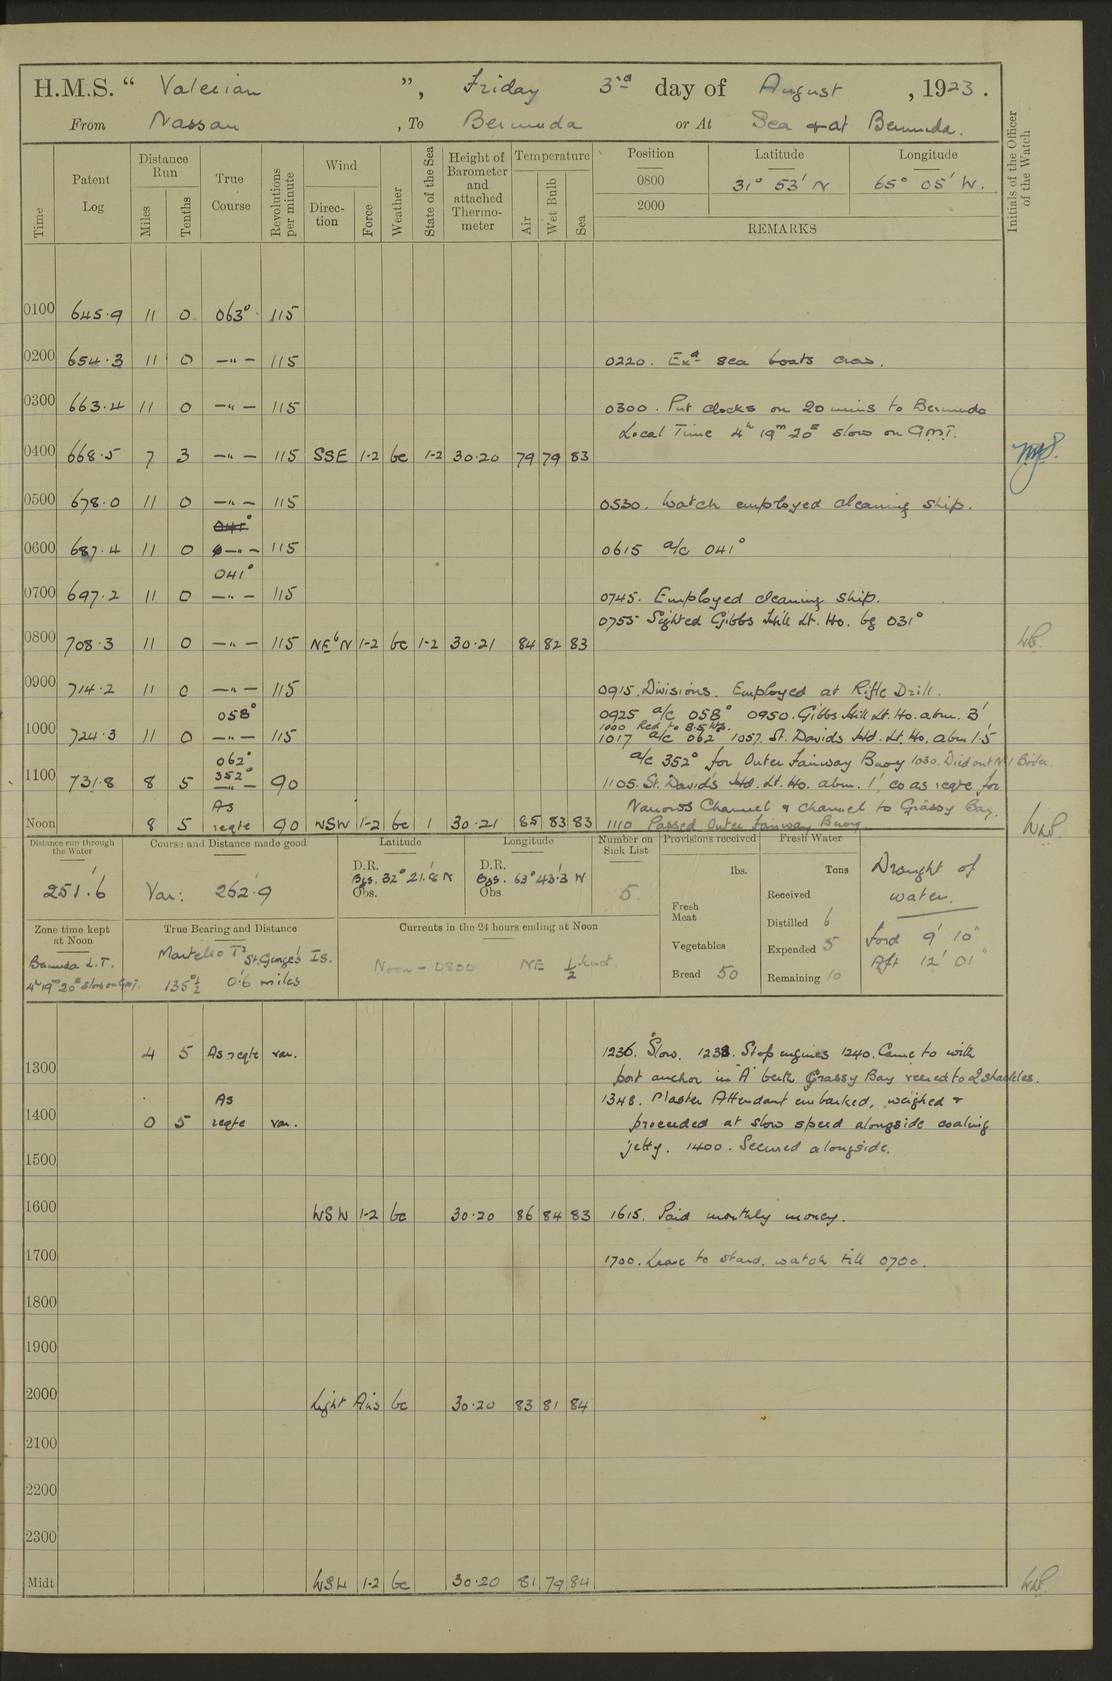 H.M.S. “ Valerian ”, Friday 3rd day of August, 1923.
From Nassau, To Bermuda or At Sea & at Bermuda.
Initials of the Officer of the Watch
Time Patent Log Distance Run Miles Tenths True Course Revolutions per minute Wind Direction Force Weather State of the Sea Height of Barometer and attached Thermometer Temperature Air Wet Bulb Sea
Position Latitude Longitude
0800 31° 53' N 65° 05' W.
2000
REMARKS
0100 645.9 11 0 063° 115
0200 654.3 11 0 —"— 115 0220. Exd sea boats crew.
0300 663.4 11 0 —"— 115 0300. Put clocks on 20 mins to Bermuda
Local Time 4h 19m 20s slow on G.M.T.
0400 668.5 7 3 —"— 115 SSE 1-2 bc 1-2 30.20 79 79 83
0500 678.0 11 0 —"— 115 0530. Watch employed cleaning ship.
041°
0600 687.4 11 0 —"— 115 0615 a/c 041°
041°
0700 697.2 11 0 —"— 115 0745. Employed cleaning ship.
0755 Sighted Gibbs Hill Lt. Ho. bg 031°
0800 708.3 11 0 —"— 115 NEbN 1-2 bc 1-2 30.21 84 82 83
0900 714.2 11 0 —"— 115 0915. Divisions. Employed at Rifle Drill.
058° 0925 a/c 058° 0950. Gibbs Hill Lt. Ho. abm. 3'
1000 Red to 8.5 kts.
1000 724.3 11 0 —"— 115 1017 a/c 062° 1057. St. Davids Hd. Lt. Ho. abm 1.5'
062° a/c 352° for Outer Fairway Buoy 1030. Died out No 1 Boiler.
352°
1100 731.8 8 5 —"— 90 1105. St. Davids Hd. Lt. Ho. abm. 1', co as reqte for
As Narrows Channel & channel to Grassy Bay.
Noon 8 5 reqte 90 WSW 1-2 bc 1 30.21 85 83 83 1110 Passed Outer Fairway Buoy
Distance run through the Water Course and Distance made good Latitude Longitude Number on Sick List Provisions received Fresh Water
251'.6 Var: 262'.9 D.R. Bgs. 32° 21'.8 N Obs. D.R. Bgs. 63° 43'.3 W Obs. 5.
lbs. Tons
Fresh Meat
Vegetables
Bread 50
Received
Distilled 6
Expended 5
Remaining 10
Draught of
water.
Ford 9' 10"
Aft 12' 01"
Zone time kept at Noon True Bearing and Distance Currents in the 24 hours ending at Noon
Bermuda L.T. Martello Tr St. George's Is. Noon – 0800 NE ½ knot.
4h 19m 20s slow on G.M.T. 135°½ 0'.6 miles
1300 4 5 As reqte var. 1236. Slow. 1238. Stop engines 1240. Came to with
port anchor in "A" berth Grassy Bay veered to 2 shackles.
As 1348. Master Attendant embarked, weighed &
1400 0 5 reqte var. proceeded at slow speed alongside coaling
jetty. 1400. Secured alongside.
1500
1600 WSW 1-2 bc 30.20 86 84 83 1615. Paid monthly money.
1700 1700. Leave to starbd. watch till 0700.
1800
1900
2000 Light Airs bc 30.20 83 81 84
2100
2200
2300
Midt WSW 1-2 bc 30.20 81 79 84